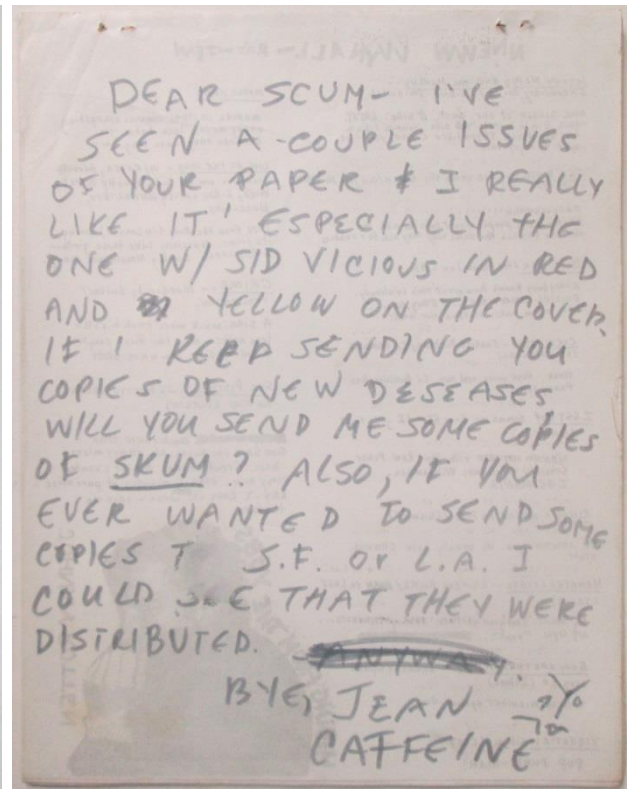 DEAR SCUM- I'VE
SEEN A COUPLE ISSUES
OF YOUR PAPER & I REALLY
LIKE IT! ESPECIALLY THE
ONE W/ SID VICIOUS IN RED
AND YELLOW ON THE COVER.
IF I KEEP SENDING YOU
COPIES OF NEW DESEASES
WILL YOU SEND ME SOME COPIES
OF SKUM? ALSO, IF YOU
EVER WANTED TO SEND SOME
COPIES T S.F. Or L.A. I
COULD SEE THAT THEY WERE
DISTRIBUTED. ANYWAY.
BYE, JEAN
CAFFEINE